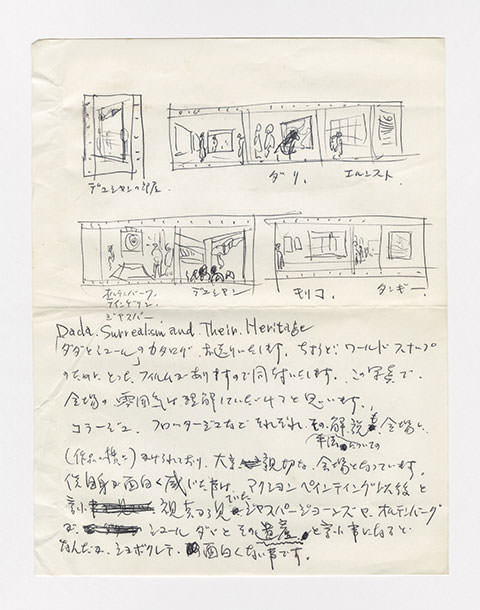 デュシャンの部屋.
ダリ.
エルンスト.
オルデンバーグ
ティンゲリ
ジャスパー
デュシャン
キリコ.
タンギー
Dada. Surrealism and Their. Heritage
「ダダとシュール」のカタログ お送りいたします. ちょうど ワールド スナップ
のために とった フィルムが ありますので同封いたします. この写真で
会場の雰囲気は理解していただけると思います.
コラージュ. フロッタージュなど それぞれ. その解説も. 会場に.
平面 についての
(作品の横に) かけられており. 大変 親切な. 会場となっています.
僕自身が面白く感じた事は. アクションペインティング以後 と
言う 視点から見ていた ジャスパージョーンズ や. オルデンバーグ
が. シュール ダダ と その 遺産. と言う事になると
なんだか. ショボクレテ. 面白くない事です.